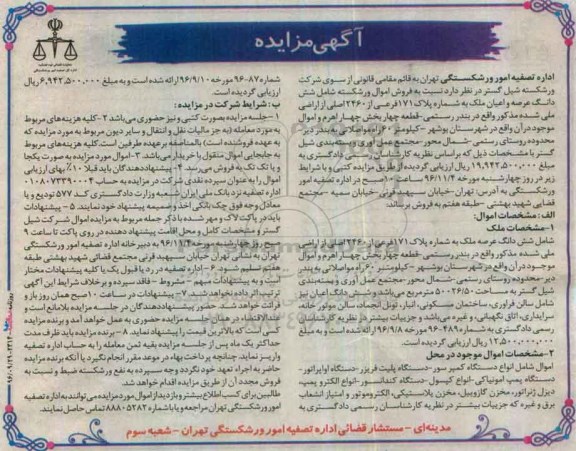 آگهی مزایده
اداره تصفیه امور ورشکستگی تهران به قائم مقامی قانونی از سوی شرکت
ورشکسته شیل گستر در نظر دارد نسبت به فروش اموال ورشکسته شامل شش
دانگ عرصه و اعیان ملک به شماره پلاک ۱۷۱ فرعی از ۲۴۶۰ اصلی از اراضی
ملی شده مذکور واقع در بندر رستمی-قطعه چهار بخش چهار اهرم و اموال
موجود در آن واقع در شهرستان بوشهر -کیلومتر ۶۰ راه مواصلاتی به بندر دیر-
محدوده روستای رستمی -شمال محور-مجتمع عمل آوری و بسته بندی شیل
گستر با مشخصات ذیل که براساس نظریه کارشناسان رسمی دادگستری به
مبلغ ۱۹,۹۴۲,۵۰۰,۰۰۰ ریال ارزیابی گردیده از طریق مزایده کتبی و با شرایط
زیر در روز چهارشنبه مورخ ۹۶/۱۱/۴ ساعت ۱۰ صبح در اداره تصفیه امور
ورشکستگی به آدرس: تهران-خیابان سپهبد قرنی- خیابان سمیه -مجتمع
قضایی شهید بهشتی -طبقه هفتم به فروش برساند.
الف: مشخصات اموال:
۱-مشخصات ملک
شامل شش دانگ عرصه ملک به شماره پلاک ۱۷۱ فرعی از ۲۴۶۰ اصلی از اراضی
ملی شده مذکور واقع در بندر رستمی -قطعه چهار بخش چهار اهرم و اموال
موجود در آن واقع در شهرستان بوشهر -کیلومتر ۶۰ راه مواصلاتی به بندر
دیر-محدوده روستای رستمی -شمال محور -مجتمع عمل آوری و بسته بندی
شیل گستر به مساحت ۵۰۰۲۶/۵۰ متر مربع می باشد و شش دانگ اعیان نیز
شامل سالن فرآوری، ساختمان مسکونی، انبار، تونل انجماد، سالن موتورخانه
سرایداری، اتاق نگهبانی، و غیره می باشد و جزییات بیشتر در نظریه کارشناسان
رسمی دادگستری به شماره ۴۸۹-۹۶ مورخه ۹۶/۹/۸ ارائه شده است و به مبلغ
۱۳,۵۰۰,۰۰۰,۰۰۰ ریال ارزیابی گردیده است.
۲-مشخصات اموال موجود در محل
اموال شامل انواع دستگاه کمپرسور-دستگاه پلیت فریزر-دستگاه اواپراتور-
دستگاه پمپ آمونیاکی -انواع کپسول-دستگاه کندانسور-انواع الکترو پمپ،
دیزل ژنراتور، مخزن گازوییل، مخزن پلاستیکی، الکتروموتور و امتیاز انشعاب
برق و غیره که جزییات بیشتر در نظریه کارشناسان رسمی دادگستری به
شماره ۸۷-۹۶ مورخه ۹۶/۹/۱۰ ارائه شده است و به مبلغ ۶,۹۴۲,۵۰۰,۰۰۰ ریال
ارزیابی گردیده است.
ب: شرایط شرکت در مزایده :
۱-جلسه مزایده بصورت کتبی و نیز حضوری می باشد ۲-کلیه هزینه های مربوط
به مورد معامله (به جز مالیات نقل و انتقال و سایر دیون مربوط به مورد مزایده که
به عهده فروشنده است) بالمناصفه برعهده طرفین است. کلیه هزینه های مربوط
به جابجایی اموال منقول با خریدار می باشد. ۳-اموال مورد مزایده به صورت یکجا
و یا تک تک به فروش می رسد. ۴- پیشنهاددهندگان باید قبلا ۱۰٪ بهای ارزیابی
اموال را به عنوان سپرده نقدی شرکت در مزایده به حساب ۰۱۰۸۰۷۳۳۹۰۰۴
اداره تصفیه نزد بانک ملی ایران شعبه وزارت دادگستری کد ۵۷۷ تودیع و یا
معادل وجه فوق چک بانکی اخذ و ضمیمه پیشنهاد خود نمایند. ۵- پیشنهادات
باید در پاکت لاک و مهر شده با ذکر جمله مربوط به مزایده اموال شرکت شیل
گستر و مشخصات کامل و محل اقامت پیشنهاد دهنده در روی پاکت تا ساعت ۹
صبح روز چهارشنبه مورخه ۹۶/۱۱/۴ به دبیرخانه اداره تصفیه امور ورشکستگی
تهران به نشانی تهران خیابان سپهبد قرنی مجتمع قضائی شهید بهشتی طبقه
هفتم تسلیم شود. ۶- اداره تصفیه در رد یا قبول یک یا کلیه پیشنهادات مختار
است و به پیشنهادات مبهم – مشروط – فاقد سپرده و برخلاف شرایط این آگهی
ترتیب اثر داده نخواهد شد. ۷- پیشنهادات در ساعت ۱۰ صبح همان روز باز و
قرائت خواهد شد. حضور پیشنهاددهندگان در جلسه مزایده بلامانع است و
عنداللزوم در همان جلسه مزایده حضوری به عمل خواهد آمد و برنده مزایده
کسی است که بالاترین قیمت را پیشنهاد نماید. ۸- برنده مزایده باید ظرف مدت
حداکثر یک ماه پس از جلسه مزایده بقیه ثمن معامله را به حساب اداره تصفیه
واریز نماید. چنانچه پرداخت بهاء در موعد مقرر انجام نگیرد یا آنکه برنده مزایده
حاضر به اجراء تعهد خود نگردد وجه سپرده به نفع ورشکسته ضبط و نسبت به
فروش مجدد آن از طریق مزایده اقدام خواهد شد.
طالبین برای کسب اطلاع بیشتر و بازدید از اموال مورد مزایده می توانند به اداره تصفیه
امور ورشکستگی تهران مراجعه و یا با شماره ۸۸۸۰۵۲۸۲ تماس حاصل نمایند.
مدینه ای – مستشار قضائی اداره تصفیه امور ورشکستگی تهران – شعبه سوم